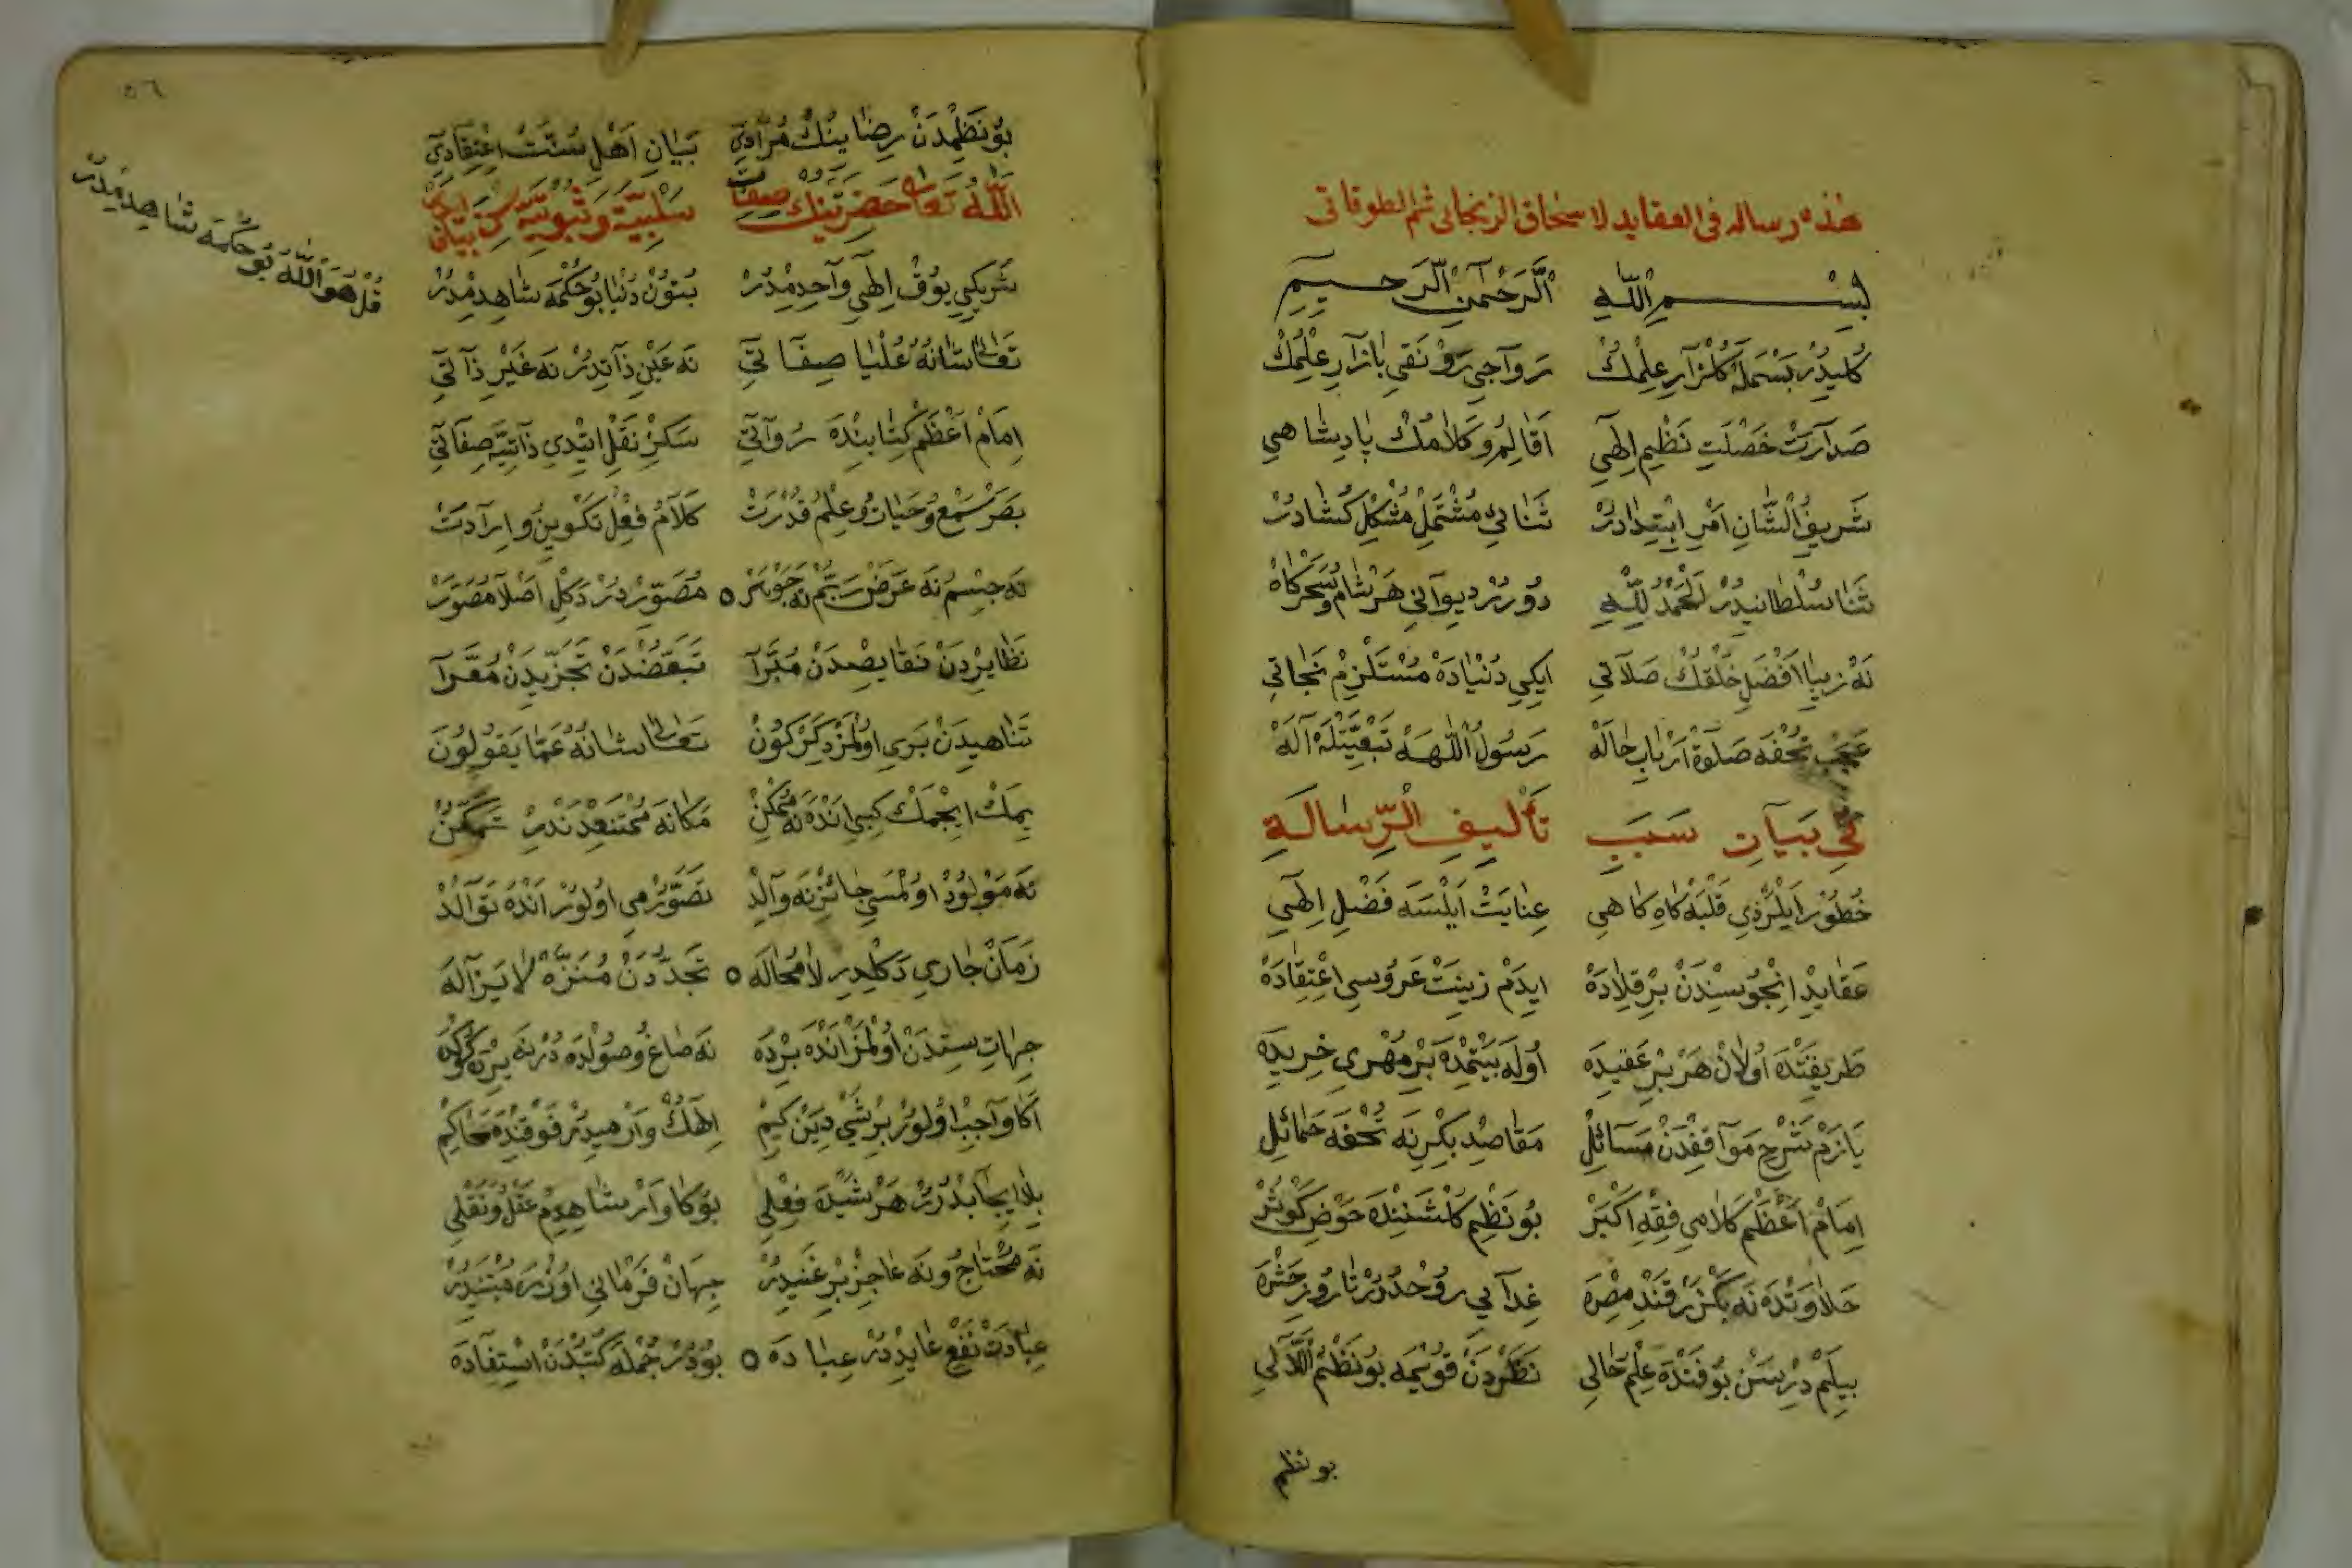 هذه رساله فى العقايد لاسحاق الزنجانى ثم الطوقاتى
بِسْمِ اللّٰهِ الرَّحْمٰنِ الرَّحِيمِ
كليددر بسمله كلزار علمك رواجى رونقى بازار علمك
صدارت خصلت نظيم الهى اقاليم و كلامك پادشاهى
شريف الشان امر ابتدادر ثنائى مشتمل مشكل كشادر
ثنا سلطانيدر الحمد لله دورر ديوانى هر شام و سحركاه
نه زيبا افضل خلقك صلاتى ايكى دنياده مستلزم نجاتى
عجب تحفه صلوة ارباب حاله رسول اللهه تبعيتله آله
فى بيان سبب تأليف الرسالة
خطور ايلردى قلبه كاه كاهى عنايت ايلسه فضل الهى
عقايد انجوسندن بر قلاده ايدم زينت عروسى اعتقاده
طريقتده اولان هر بر عقيده اوله بيتمده بر مهرى خريده
يازم شرح مواقفدن مسائل مقاصد بكرنه تحفه حمائل
امام اعظم كلامى فقه اكبر بو نظم كلشننده حوض كوثر
حلاوتده نه بكزر قند مصره غدايى روحدرر تا روز حشره
بيلم درسن بو فنده علم حالى نظردن قويمه بو نظم اللآلى
بو نظم
٥٦
بو نظمدن رضاينك مرادى بيان اهل سنت اعتقادى
الله تعالى حضرتينك صفات سلبية و ثبوتية سن بيان ايدر
شريكى يوق الهى واحدمدر بتون دنيا بو حكمه شاهدمدر
قل هو الله بو حكمه شاهدمدر
تعالى شانه عليا صفاتى نه عين ذاتدر نه غير ذاتى
امام اعظم كتابنده رواتى سكز نقل ايتدى ذاتيه صفاتى
بصر سمع و حيات و علم قدرت كلام فعل تكوين و ارادت
نه جسم نه عرض ربم نه جوهر مصوردر دكل اصلا مصور
نظايردن نقايصدن مبرا تبعضدن تجزيدن معرا
تناهيدن برى اولمز دكركون تعالى شانه عما يقولون
يمك ايچمك كبى انده نه ممكن مكانه ممتنعدندر تمكن
نه مولود اولمسى جائز نه والد تصورمى اولور انده توالد
زمان جارى دكلدر لا محاله تجددن منزه لا يزاله
جهات ستدن اولمز انده برده نه صاغ و صولده در نه يرده كوكده
اكا واجب اولور بر شى دين كيم الهك وارميدر فوقنده محاكم
بلا ايجابدرر هر شيده فعلى بوكا وار شاهدم عقل و نقلى
نه محتاج و نه عاجز بر غنيدر جهان فرمانى اوزره مبتنيدر
عبادت نفع عايددر عباده بودر جمله كتبدن استفاده